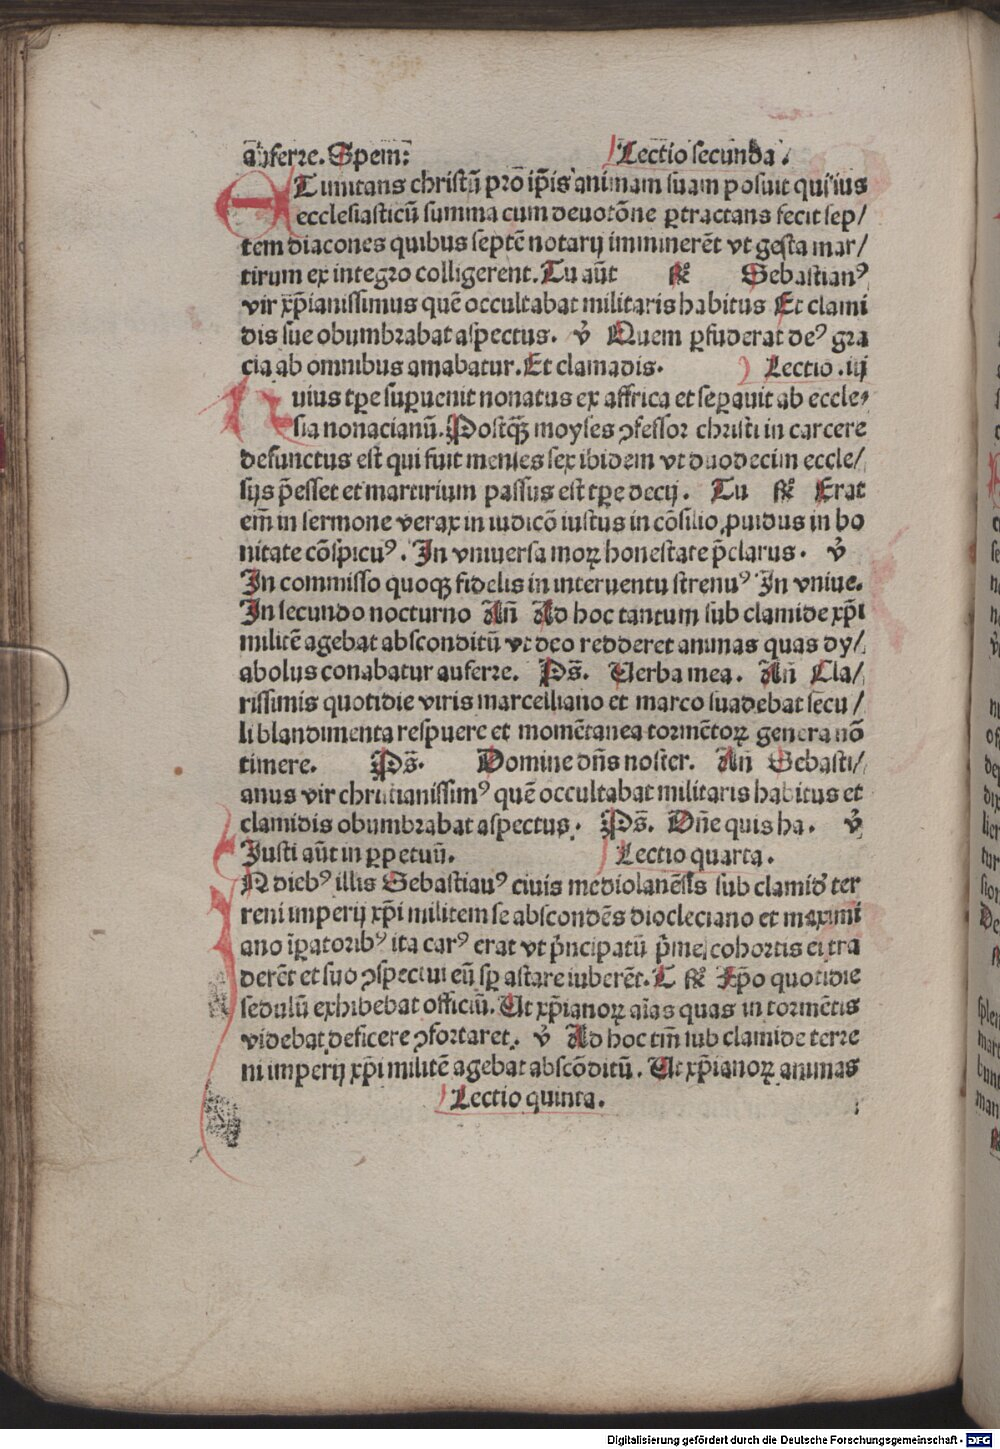 auferre. Spem: Lectio secunda.
ET imitans christū pro ip̄is animam suam posuit qui ius
ecclesiasticū summa cum deuotōne ꝑtractans fecit sep/
tem diacones quibus septē notarij imminerēt vt gesta mar/
tirum ex integro colligerent. Tu aūt ꝶ Sebastianꝰ
vir xp̄ianissimus quē occultabat militaris habitus Et clami
dis sue obumbrabat aspectus. ꝟ Quem ꝑfuderat deꝰ gra
cia ab omnibus amabatur. Et clamadis. Lectio .iij
Huius tꝑe suꝑuenit nonatus ex affrica et seꝑauit ab eccle/
sia nonacianū. Postq̄ moyses ꝯfessor christi in carcere
defunctus est qui fuit menses sex ibidem vt duodecim eccle/
sijs p̄esset et martirium passus est tꝑe decij. Tu ꝶ Erat
em̄ in sermone verax in iudicō iustus in cōsilio ꝓuidus in bo
nitate cōspicuꝰ. In vniuersa moꝝ honestate p̄clarus. ꝟ
In commisso quoqꝫ fidelis in interuentu strenuꝰ In vniue.
In secundo nocturno Añ Ad hoc tantum sub clamide xp̄i
militē agebat absconditū vt deo redderet animas quas dy/
abolus conabatur auferre. Ps̄. Verba mea. Añ Cla/
rissimis quotidie viris marcelliano et marco suadebat secu/
li blandimenta respuere et momētanea tormētoꝝ genera nō
timere. Ps̄. Domine dn̄s noster. Añ Sebasti/
anus vir christianissimꝰ quē occultabat militaris habitus et
clamidis obumbrabat aspectus. Ps̄. Dn̄e quis ha. ꝟ
Iusti aūt in ꝑpetuū. Lectio quarta.
IN diebꝰ illis Sebastiauꝰ ciuis mediolanēsis sub clamid' ter
reni imperij xp̄i militem se abscondēs diocleciano et maximi
ano īꝑatoribꝰ ita carꝰ erat vt p̄ncipatū p̄me cohortis ei tra
derēt et suo ꝯspectui eū sꝑ astare iuberēt. T ꝶ Xp̄o quotidie
sedulū exhibebat officiū. Et xp̄ianoꝝ aīas quas in tormētis
videbat deficere ꝯfortaret. ꝟ Ad hoc tm̄ sub clamide terre
ni imperij xp̄i militē agebat abscōditū. Et xp̄ianoꝝ animas
Lectio quinta.
Digitalisierung gefördert durch die Deutsche Forschungsgemeinschaft - DFG